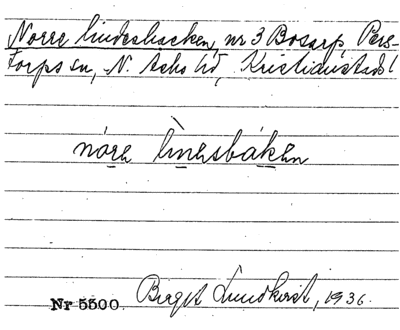 Norra lindesbacken, nr 3 Bosarp, Pers-
torps sn, N. Åsbo hd, Kristianstads l
nórɛ lìnɛsbákɛn
Nr 5500 Birgit Lundkvist, 1936.